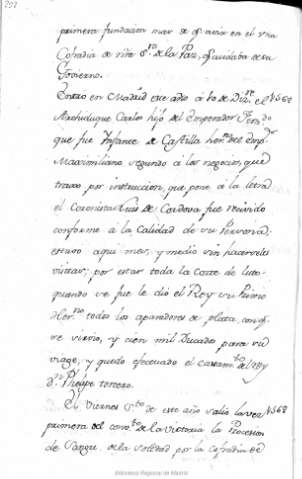 707
primera fundacion mas de q.e avia en el una
Cofradia de ntra S.ra de la Paz, q.e cuidaba de su
Govierno.
Entro en Madrid este año á 10 de Diz.re el 1568
Archiduque Carlos hijo del Emperador Fern.do
que fue Ynfante de Castilla herm.o del Emp.r
Maximiliano segundo á los negocios, que
traxo por instruccion, que pone á la letra
el Coronista Luis de Cordova fue recivido
conforme á la Calidad de su Persona;
estuvo aqui mes, y medio sin hacersele
visitas; por estar toda la Corte de luto
quando se fue le dió el Rey su Primo
Her.no todos los aparadores de plata, con q.e
se sirvio, y cien mil Ducados para su
viage, y quedo efectuado el casam.to del Rey
d.n Phelipe tercero.
El Viernes S.to de este año salió la vez 1568
primera del conv.to de la Victoria la Procesion
de Sangre, de la Soledad por la Cofradia de
Biblioteca Regional de Madrid